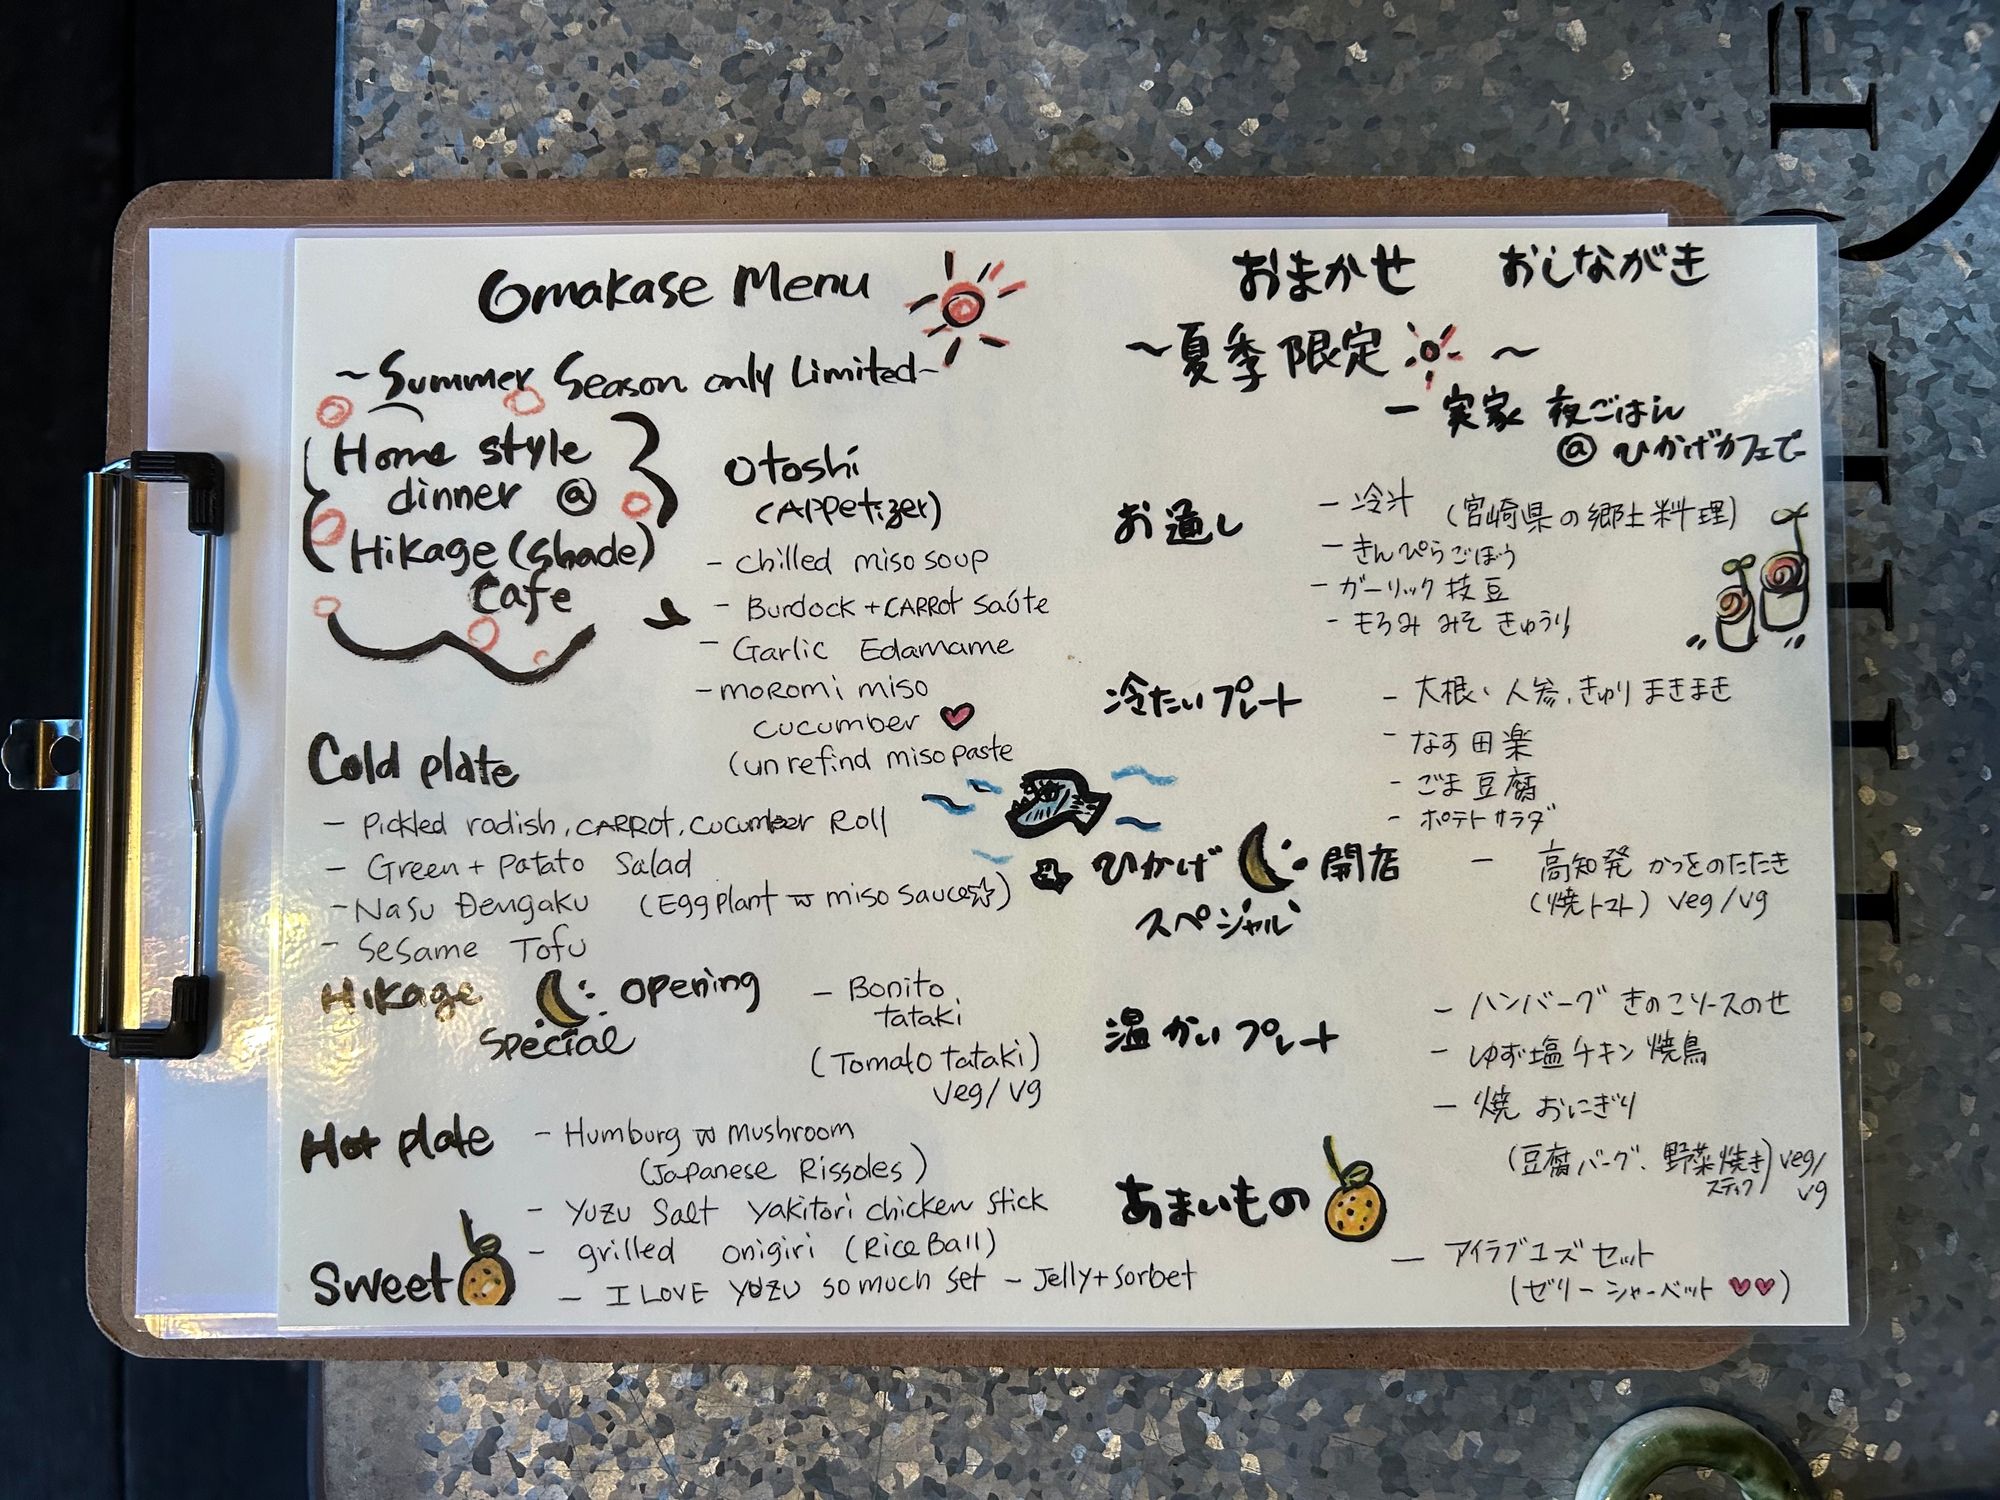 Omakase Menu
~Summer Season only Limited~
Home style
dinner @
Hikage (shade)
Cafe
Otoshi
(Appetizer)
- Chilled miso soup
- Burdock + CARROt saúte
- Garlic Edamame
- moromi miso
cucumber
(unrefind miso paste
Cold plate
- Pickled radish, CARROt, cucumber Roll
- Green + Patato Salad
- Nasu Dengaku (Eggplant w miso sauce☆)
- Sesame Tofu
Hikage Opening
Special
- Bonito
tataki
(Tomato tataki)
veg/vg
Hot plate
- Humburg w mushroom
(Japanese Rissoles)
- Yuzu Salt Yakitori chicken stick
- grilled onigiri (Rice Ball)
Sweet
- I LOVE YUZU so much set - Jelly+sorbet
おまかせ おしながき
~夏季限定 ~
ー 実家 夜ごはん
@ ひかげカフェで
お通し
- 冷汁 (宮崎県の郷土料理)
- きんぴらごぼう
- ガーリック枝豆
- もろみ みそ きゅうり
冷たいプレート
- 大根、人参、きゅり まきまき
- なす田楽
- ごま豆腐
- ポテトサラダ
ひかげ 開店
スペシャル
- 高知発 かつをのたたき
(焼トマト) veg/vg
温かいプレート
- ハンバーグ きのこソースのせ
- ゆず塩チキン焼鳥
- 焼 おにぎり
(豆腐バーグ、野菜焼き) veg/
スティック vg
あまいもの
- アイラブユズセット
(ゼリー シャーベット ♥♥)